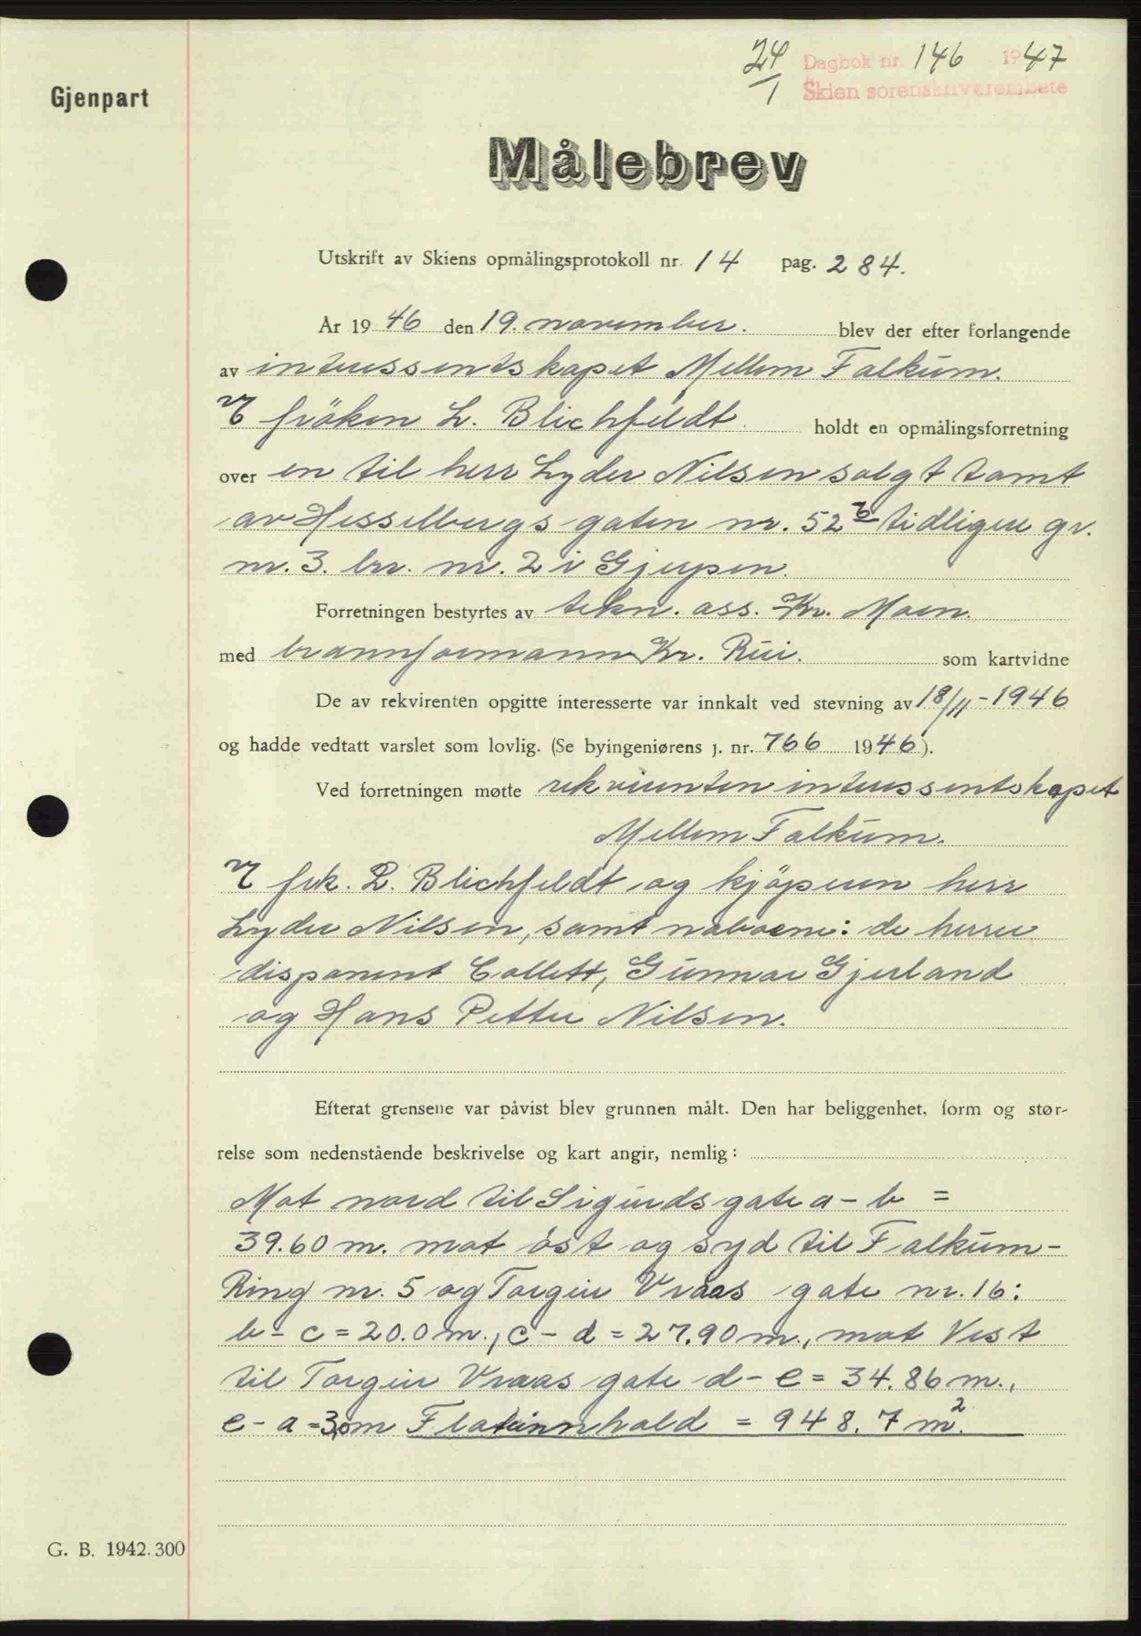 24/1 Dagbok nr. 146 1947
Skien sorenskriverembete
Gjenpart
Målebrev
Utskrift av Skiens opmålingsprotokoll nr. 14 pag. 284.
År 1946 den 19. november. blev der efter forlangende
av interessentskapet Mellem Falkum.
v/ fröken L. Blichfeldt. holdt en opmålingsforretning
over en til herr Lyder Nilsen solgt tomt
av Hesselbergs gaten nr. 52 b tidligere gr.
nr. 3. br. nr. 2 i Gjerpen.
Forretningen bestyrtes av tekn. ass. Kr. Moen.
med brannformann Kr. Rui. som kartvidne
De av rekvirenten opgitte interesserte var innkalt ved stevning av 18/11-1946
og hadde vedtatt varslet som lovlig. (Se byingeniørens j. nr. 766 1946).
Ved forretningen møtte rekvirenten interessentskapet
Mellem Falkum.
v/ frk. L. Blichfeldt og kjöperen herr
Lyder Nilsen, samt naboene: de herrer
disponent Collett, Gunnar Gjerland
og Hans Petter Nilsen.
Efterat grensene var påvist blev grunnen målt. Den har beliggenhet, form og stør-
relse som nedenstående beskrivelse og kart angir, nemlig:
Mot nord til Sigurds gate a - b =
39.60 m. mot öst og syd til Falkum-
Ring nr. 5 og Torgeir Vraas gate nr. 16:
b - c = 20.0 m., c - d = 27.90 m., mot Vest
til Torgeir Vraas gate d - e = 34.86 m.,
e - a = 3,0 m Flateinnhold = 948.7 m².
G. B. 1942.300